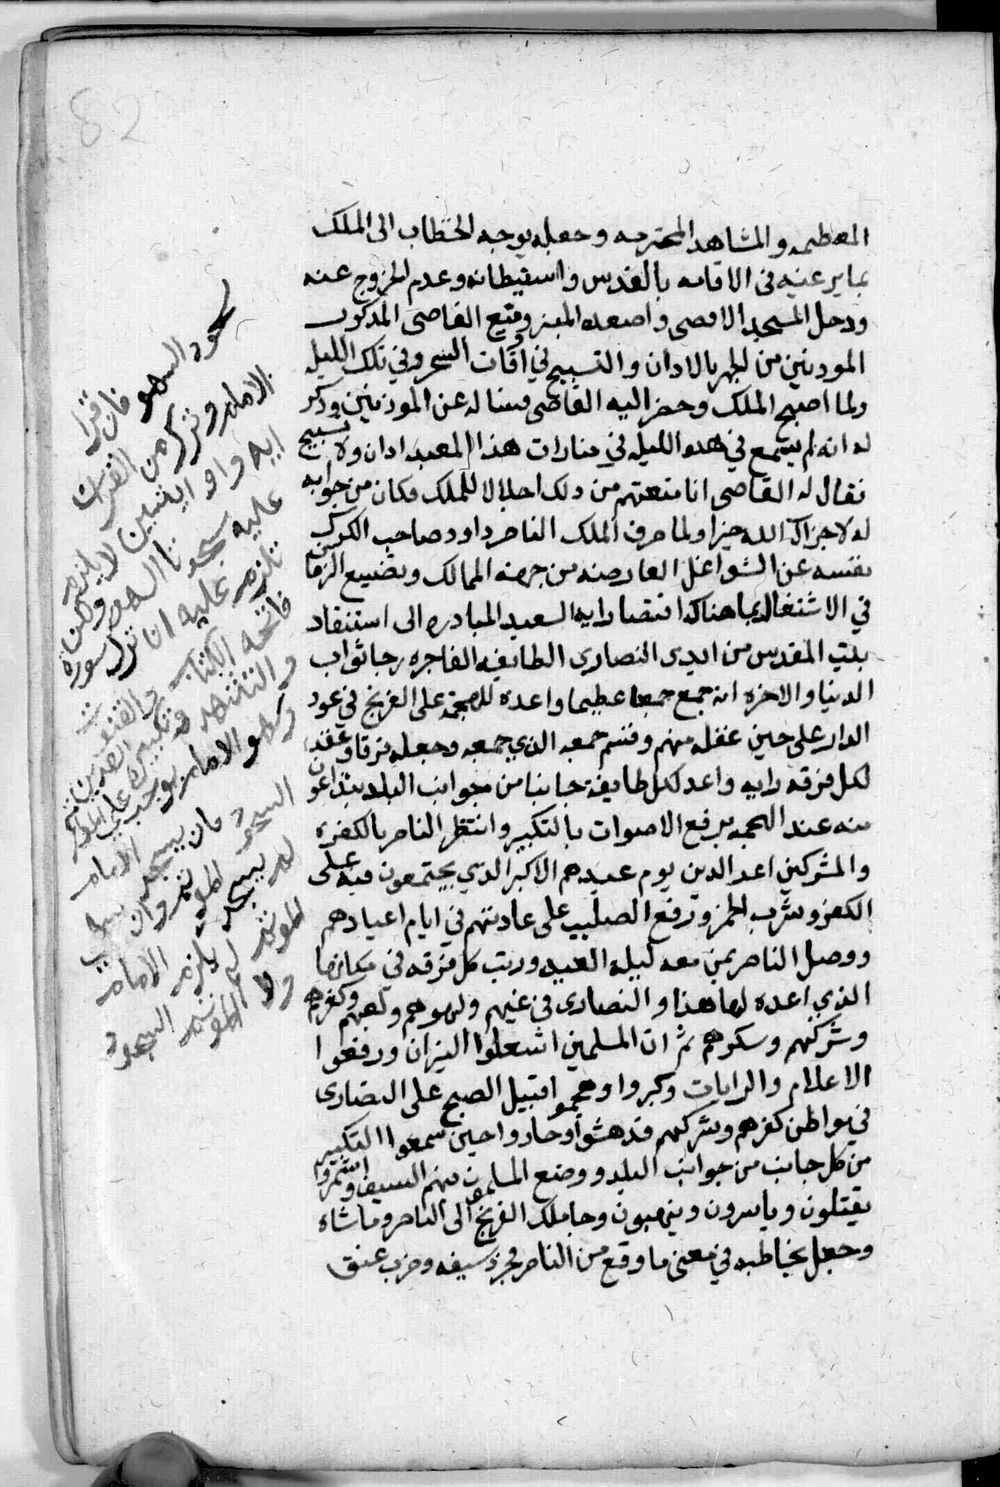 82
المعظمه والمشاهد المحترمه وجعله يوجه الخطاب الى الملك
بما يرغبه في الاقامه بالقدس واستيطانه وعدم الخروج عنه
ودخل المسجد الاقصى واصعده المنبر ومنع القاضى المذكور
الموذنين من الجهر بالاذان والتسبيح في اوقات السحر في تلك الليله
ولما اصبح الملك وحضر اليه القاضى فساله عن الموذنين وذكر
له انه لم يسمع في هذه الليله في منارات هذا المعبد اذان ولا تسبيح
فقال له القاضى انا منعتهم من ذلك اجلالا للملك فكان من جوابه
له لا جزاك الله خيرا ولما صرف الملك الناصر داود صاحب الكرك
نفسه عن الشواغل العارضه من جهة الممالك وتضييع الزمان
في الاشتغال بما هنالك اقتضا رايه السعيد المبادره الى استنقاد
بيت المقدس من ايدى النصارى الطايفه الفاجره رجا ثواب
الدنيا والاخره انه جمع جمعا عظيما واعده للهجمة على الفرنج في عود
الدار على حين غفله منهم وقسم جمعه الذي جمعه وجعله فرقا وعقد
لكل فرقه رايه واعد لكل طايفة جانبا من جوانب البلد يتداعون
منه عند الهجمه برفع الاصوات بالتكبير وانتظر الناصر بالكفره
والمشركين اعدا الدين يوم عيدهم الاكبر الذي يجتمعون فيه على
الكفر وشرب الخمر ورفع الصليب على عادتهم في ايام اعيادهم
ووصل الناصر بمن معه ليله العيد ورتب كل فرقه في مكانها
الذي اعده لها هذا والنصارى في غيهم ولهوهم ولعبهم وكفرهم
وشركهم وسكرهم ثم ان المسلمين اشعلوا النيران ورفعوا
الاعلام والرايات وكبروا وهجموا قبيل الصبح على النصارى
في مواطن كفرهم وشركهم فدهشوا وحاروا حين سمعوا التكبير
من كل جانب من جوانب البلد ووضع المسلمون فيهم السيف واستمروا
يقتلون وياسرون وينهبون وجا ملك الفرنج الى الناصر وماشاه
وجعل يخاطبه في معنى ما وقع من الناصر فجرد سيفه وضرب عنق
سجود السهو فان قرا
الامام وترك من القران
ايه او ايتين لا يلزمه
عليه سجد تا السهو ولكن
تلزم عليه ان ترك سورة
فاتحه الكتاب والقنوت
والتشهد وتكبيرة العيدين
وسهو الامام يوجب على الموتم
السجود فان يسجد الامام
لم يسجد الموتم وان سها
الموتم لم يلزم الامام
ولا الموتم السجود